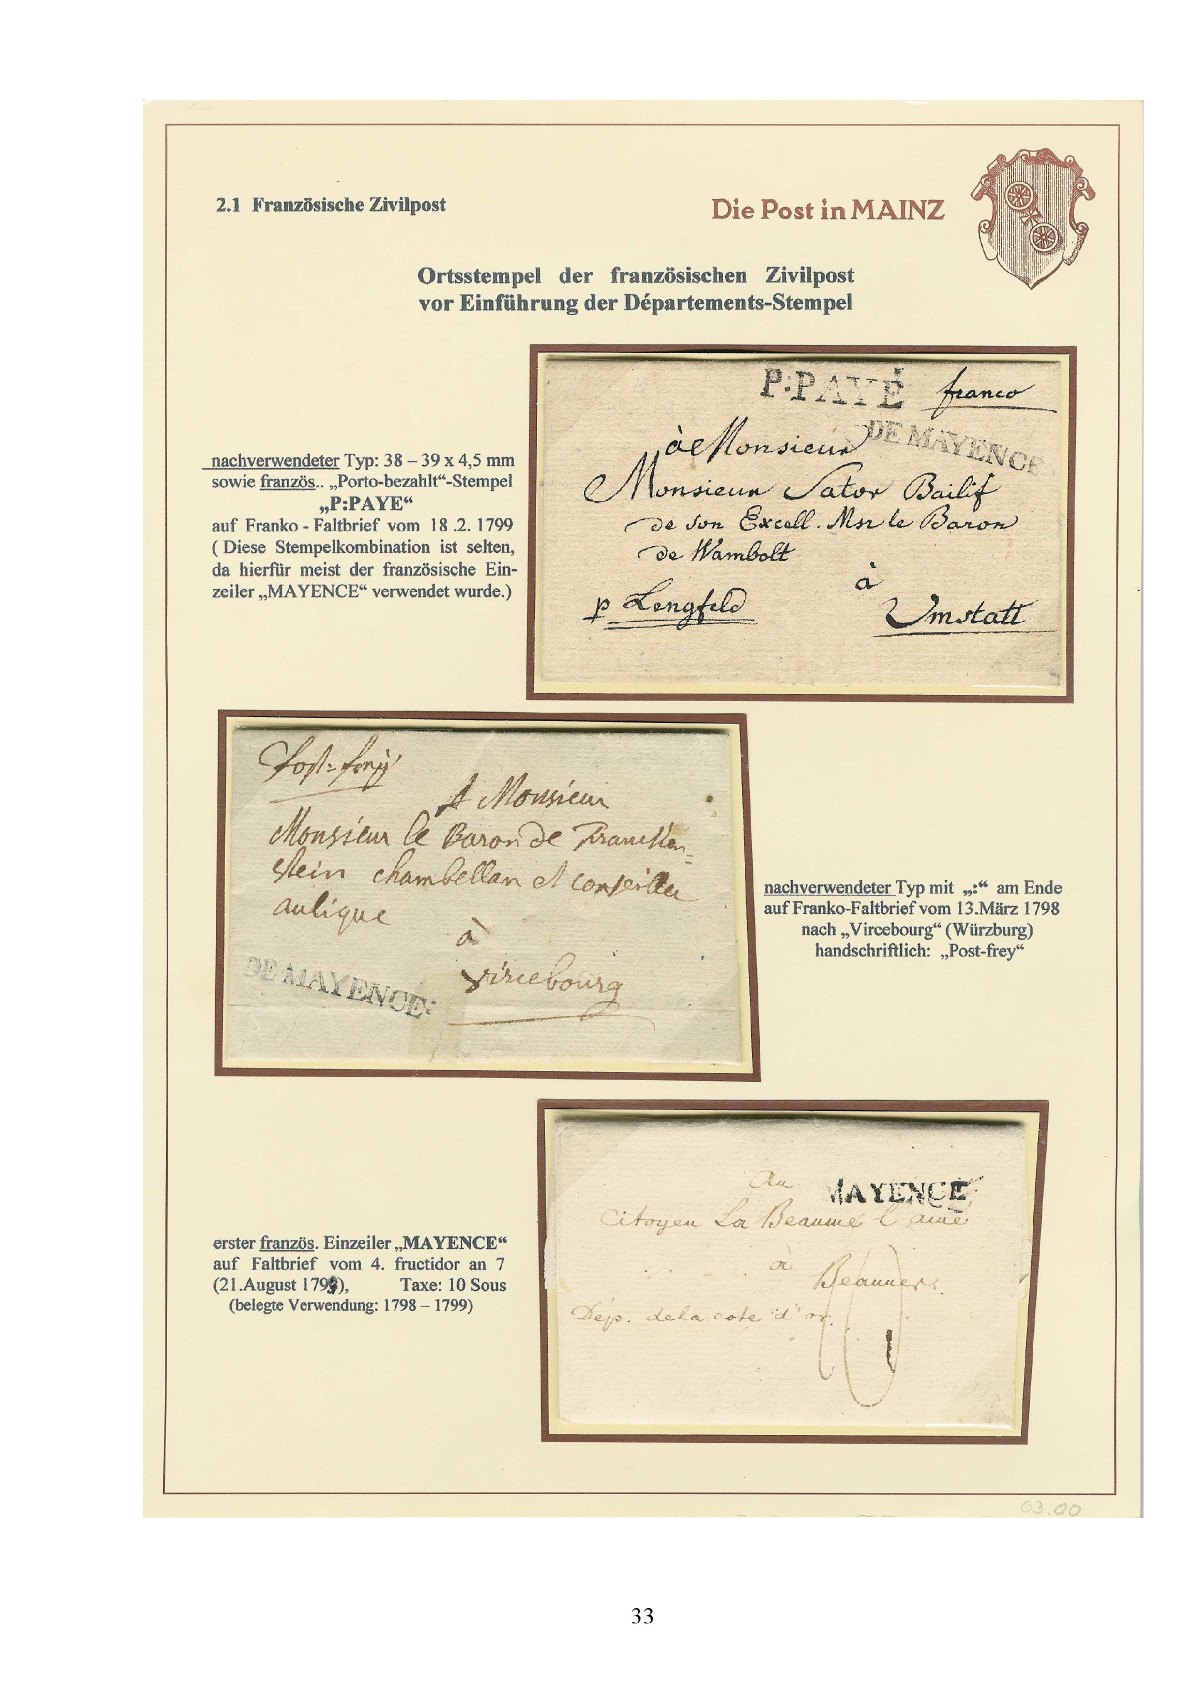 2.1 Französische Zivilpost
Die Post in MAINZ
Ortsstempel der französischen Zivilpost
vor Einführung der Départements-Stempel
P:PAYÉ franco
DE MAYENCE
à Monsieur
Monsieur Sator Bailif
de son Excell. Msr le Baron
de Wambolt
à
p Lengfeld
Umstatt
nachverwendeter Typ: 38 – 39 x 4,5 mm
sowie französ.. „Porto-bezahlt“-Stempel
„P:PAYE“
auf Franko - Faltbrief vom 18 .2. 1799
( Diese Stempelkombination ist selten,
da hierfür meist der französische Ein-
zeiler „MAYENCE“ verwendet wurde.)
A Monsieur
Monsieur le Baron de Francken=
stein chambellan et conseiller
aulique
à
Vircebourg
DE MAYENCE:
nachverwendeter Typ mit „:“ am Ende
auf Franko-Faltbrief vom 13.März 1798
nach „Vircebourg“ (Würzburg)
handschriftlich: „Post-frey“
Au MAYENCE
Citoyen La Beaume l'ainé
à
Dép. de la cote d'or.
10
erster französ. Einzeiler „MAYENCE“
auf Faltbrief vom 4. fructidor an 7
(21.August 1799), Taxe: 10 Sous
(belegte Verwendung: 1798 – 1799)
63.00
33